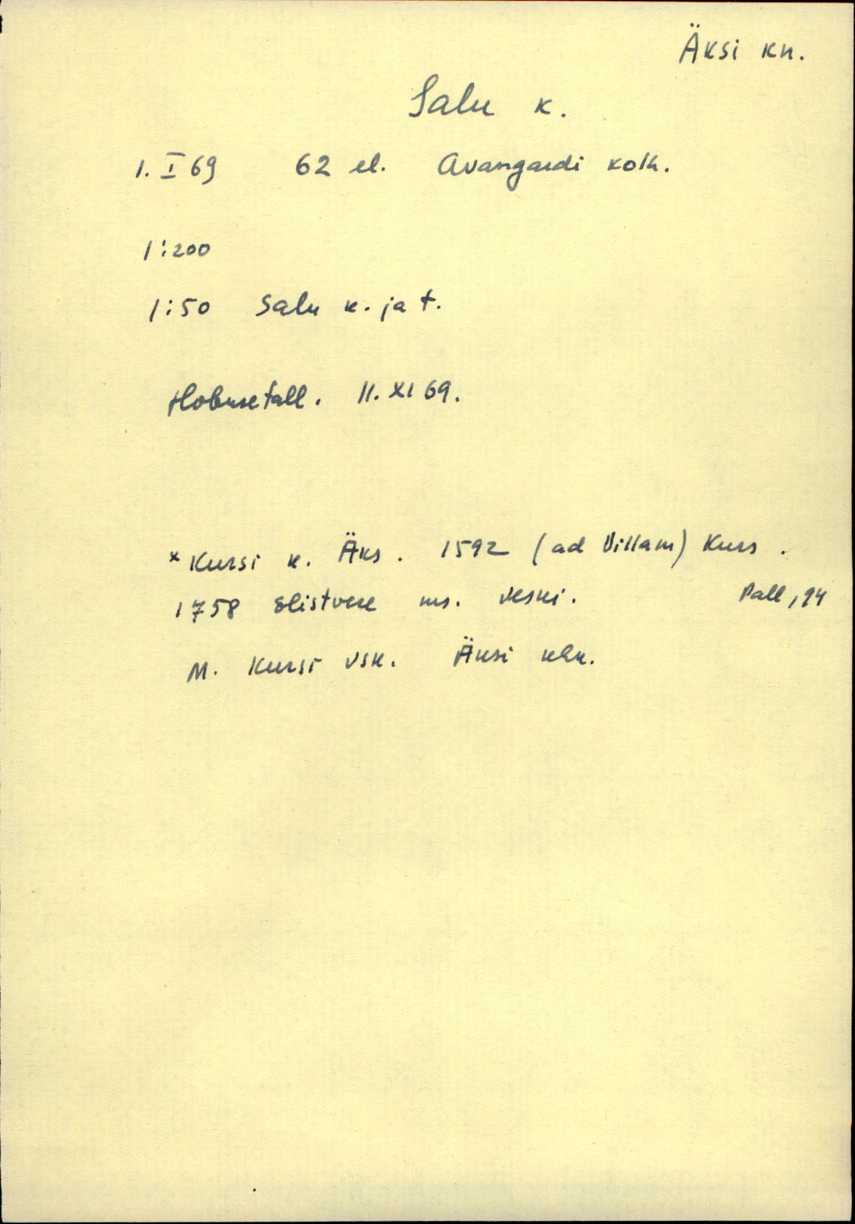 Äksi kn.
Salu k.
1. I 69 62 el. Avangardi kolh.
1:200
1:50 Salu k. ja t.
Hobusetall. 11. XI 69.
* Kursi k. Äks. 1592 (ad Villam) Kurs.
1758 Elistvere ms. veski. Pall, 94
M. Kursi vsk. Äksi khk.